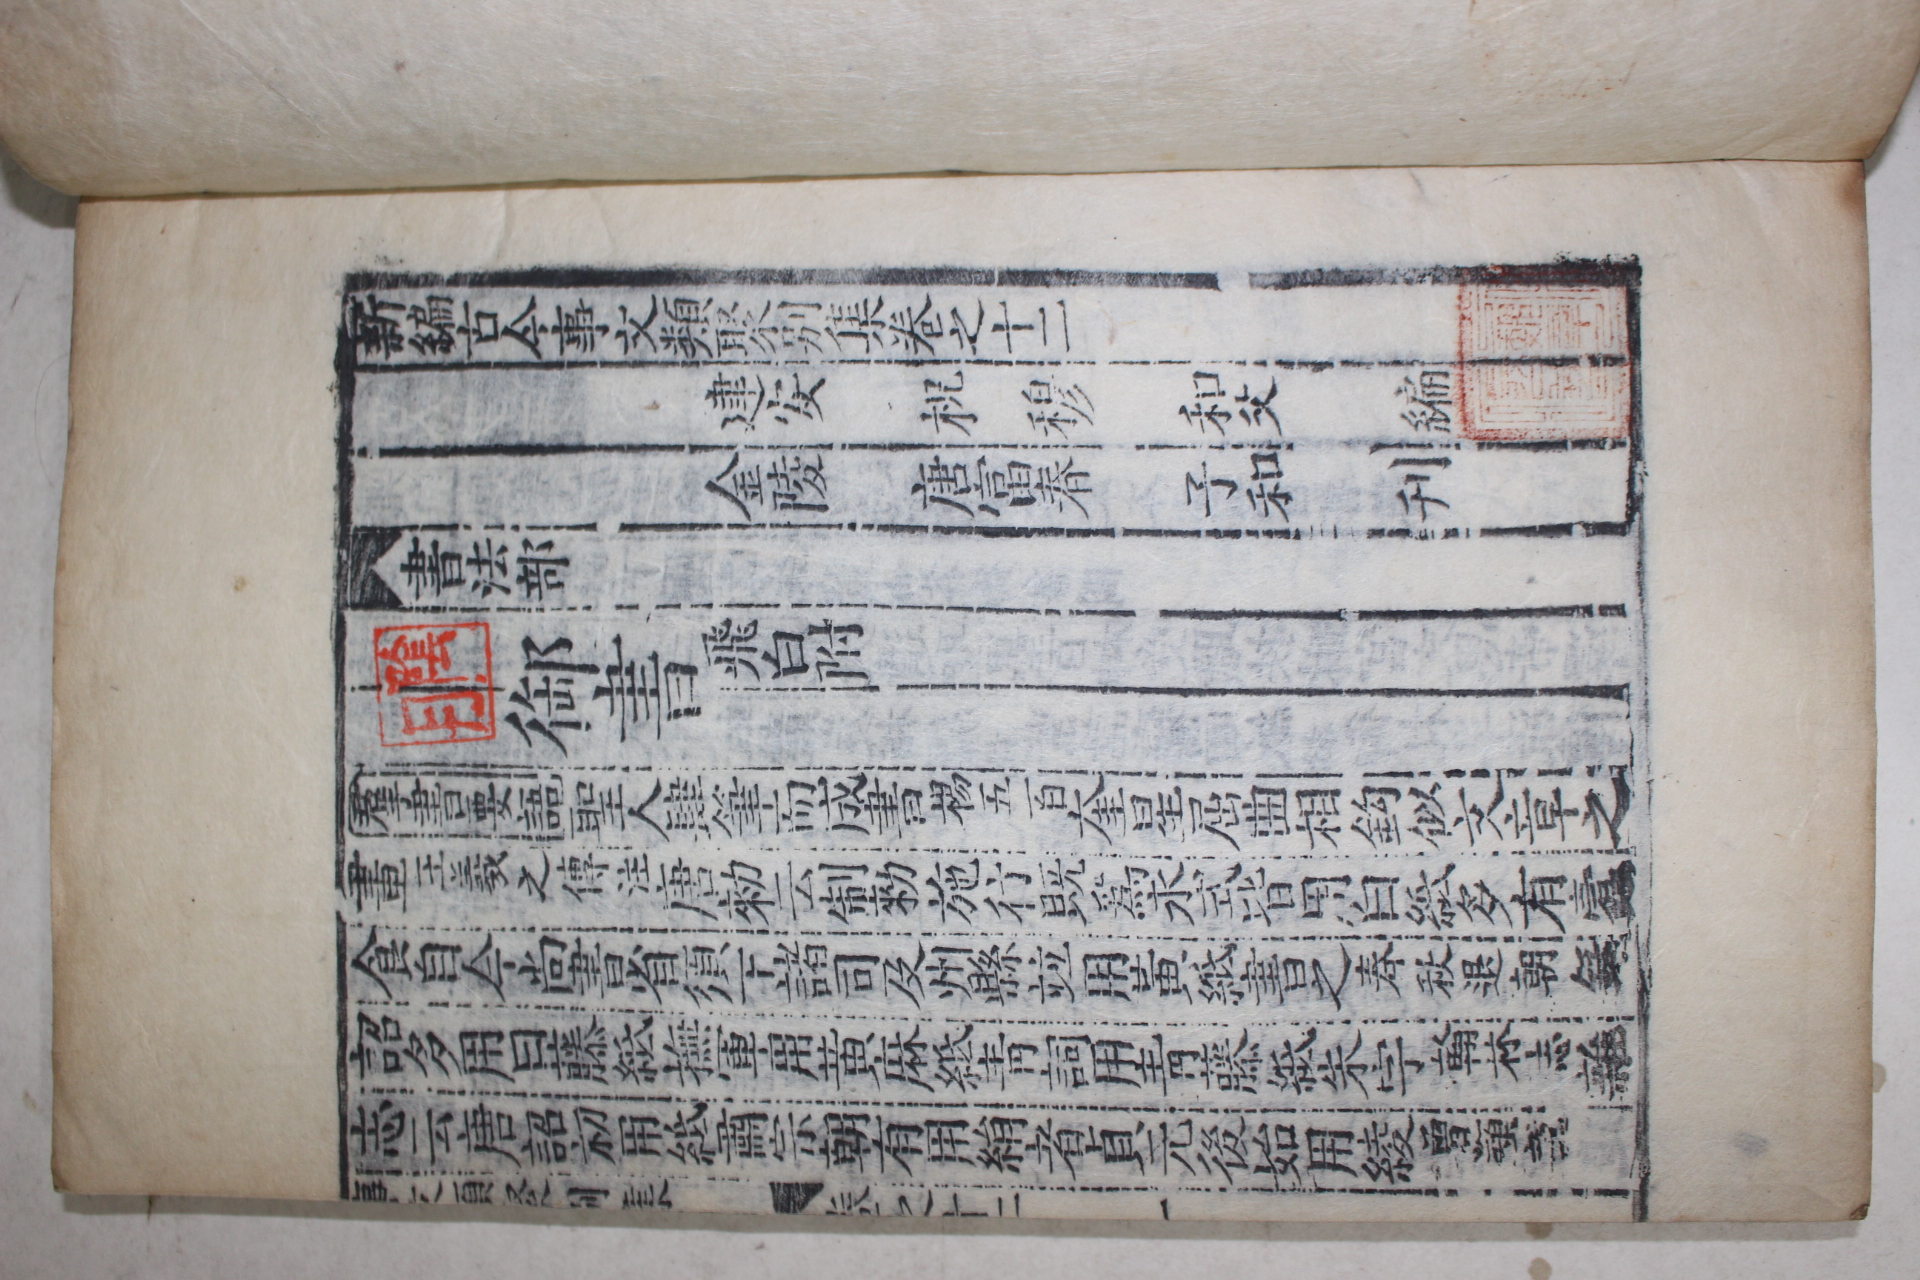 新編古今事文類聚別集卷之十二
建安 祝 穆 和父 編
金陵 唐富春 子和 刊
書法部
御書 飛白附
群書要語聖人肆筆而成書楊五百奎星屈曲相鈎似文章之
畫王羲之傳注唐勑云制勑施行既爲永式皆用白紙多有蠧
食自今尚書省須下諸司及州縣並用黃紙書之春秋退朝錄
詔多用白藤紙撫軍用黃麻紙青詞用青藤紙朱字翰林志雜
志云唐詔初用紙肅宗朝有用絹者貞元後始用綾
事文類聚別集 卷之十二 一
陰